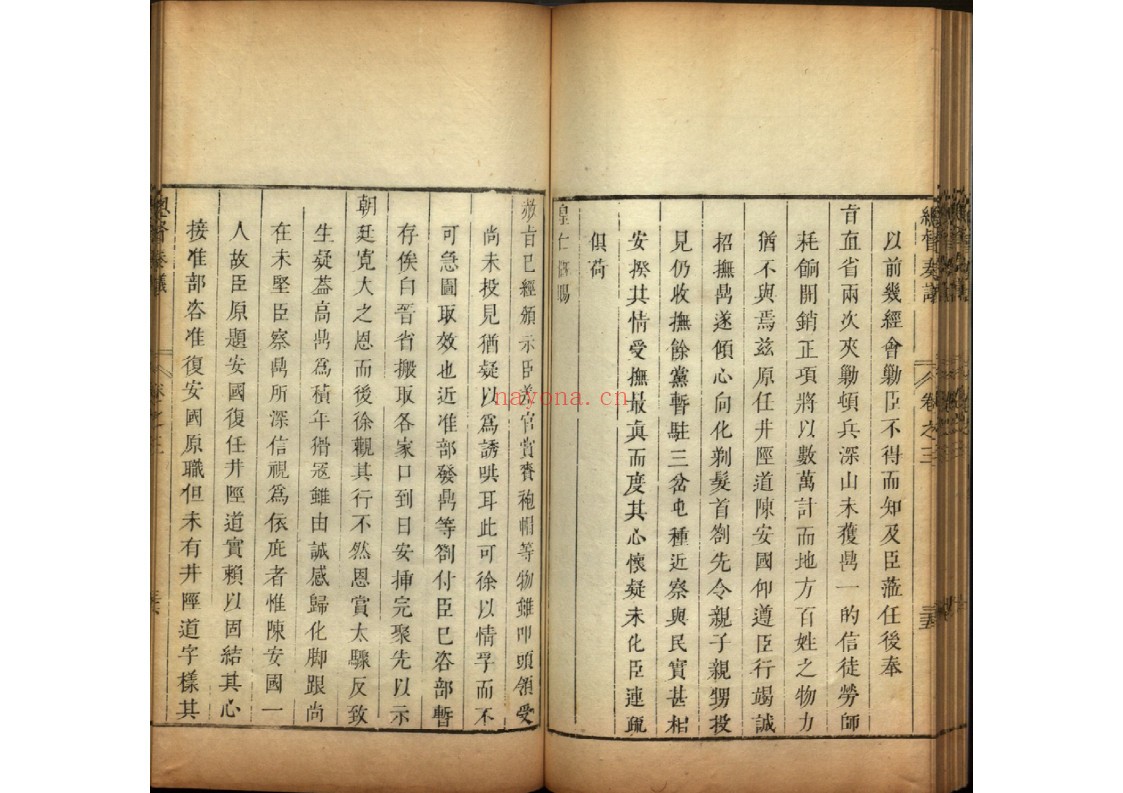 總督奏議 卷之三
以前幾經會勦臣不得而知及臣蒞任後奉
旨直省兩次夾勦頓兵深山未獲鼎一的信徒勞師
耗餉開銷正項將以數萬計而地方百姓之物力
猶不與焉兹原任井陘道陳安國仰遵臣行竭誠
招撫鼎遂傾心向化剃髮首劄先令親子親甥投
見仍收撫餘黨暫駐三岔屯種近察與民實甚相
安揆其情受撫最眞而度其心懷疑未化臣連疏
俱荷
皇仁 賜
敕旨已經頒示臣差官賞賚袍帽等物雖叩頭領受
尚未投見猶疑以爲誘哄耳此可徐以情孚而不
可急圖取效也近准部發鼎等劄付臣已咨部暫
存俟白晉省搬取各家口到日安揷完聚先以示
朝廷寬大之恩而後徐觀其行不然恩賞太驟反致
生疑葢高鼎爲積年猾寇雖由誠感歸化脚跟尚
在未堅臣察鼎所深信視爲依庇者惟陳安國一
人故臣原題安國復任井陘道實賴以固結其心
接准部咨准復安國原職但未有井陘道字樣其
總督奏議 卷之三
nayona.cn